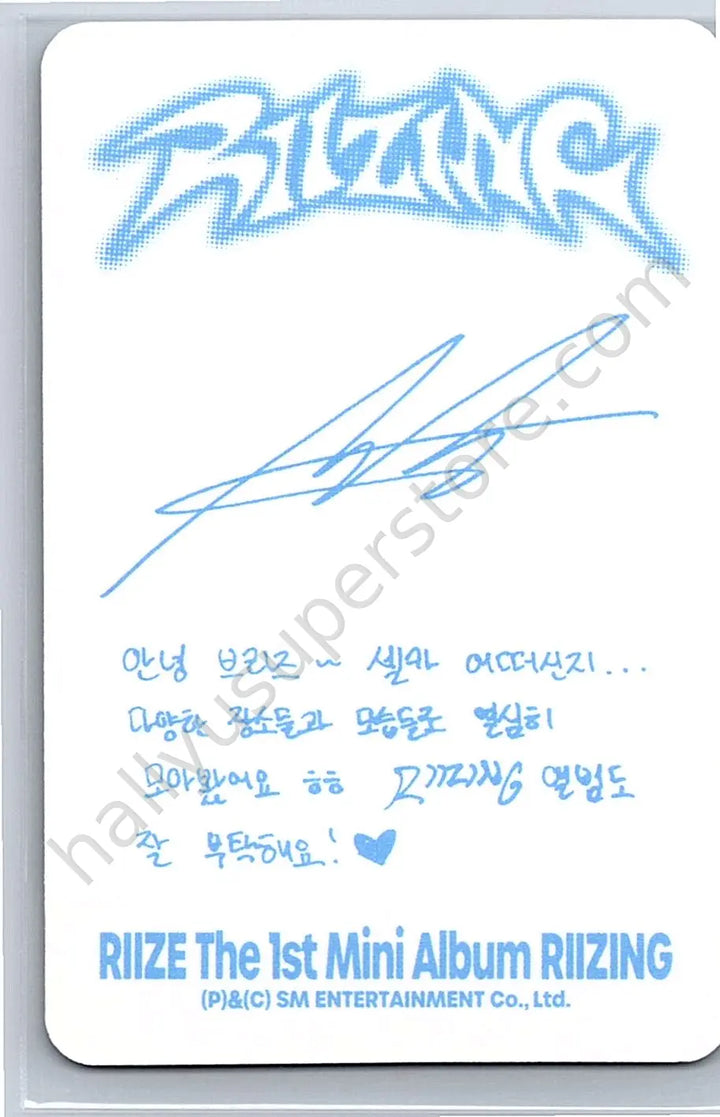 RIIZING
안녕 브리즈~ 셀카 어떠신지...
다양한 장소들과 모습들로 열심히
모아봤어요 ㅎㅎ RIIZING 앨범도
잘 부탁해요! ♥
RIIZE The 1st Mini Album RIIZING
(P)&(C) SM ENTERTAINMENT Co., Ltd.
hallyusuperstore.com